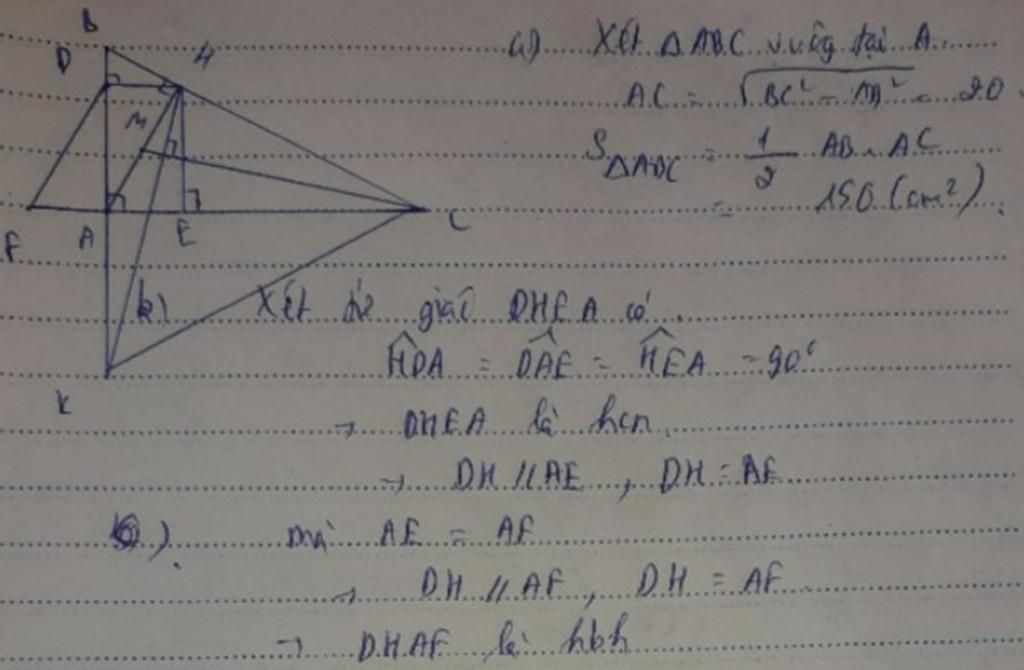 B
D
H
M
F
A
E
C
K
a) Xét ΔABC vuông tại A.
AC = √(BC² - AB²) = 20
S_ΔABC = 1/2 AB. AC
= 150 (cm²).
b) Xét tứ giác DHEA có
HDA = DAE = HEA = 90°
→ DHEA là hcn.
→ DH // AE , DH = AE
c). mà AE = AF
→ DH // AF, DH = AF
→ DHAF là hbh